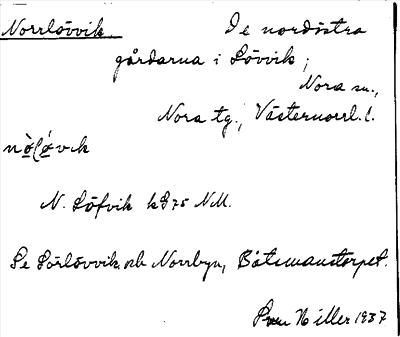 Norrlövvik. De nordöstra
gårdarna i Lövvik;
Nora sn.,
Nora tg., Västernorrl. l.
N. Löfvik k 875 NM.
Se Sörlövvik och Norrbyn, Båtsmanstorpet.
Sven Hiller 1937